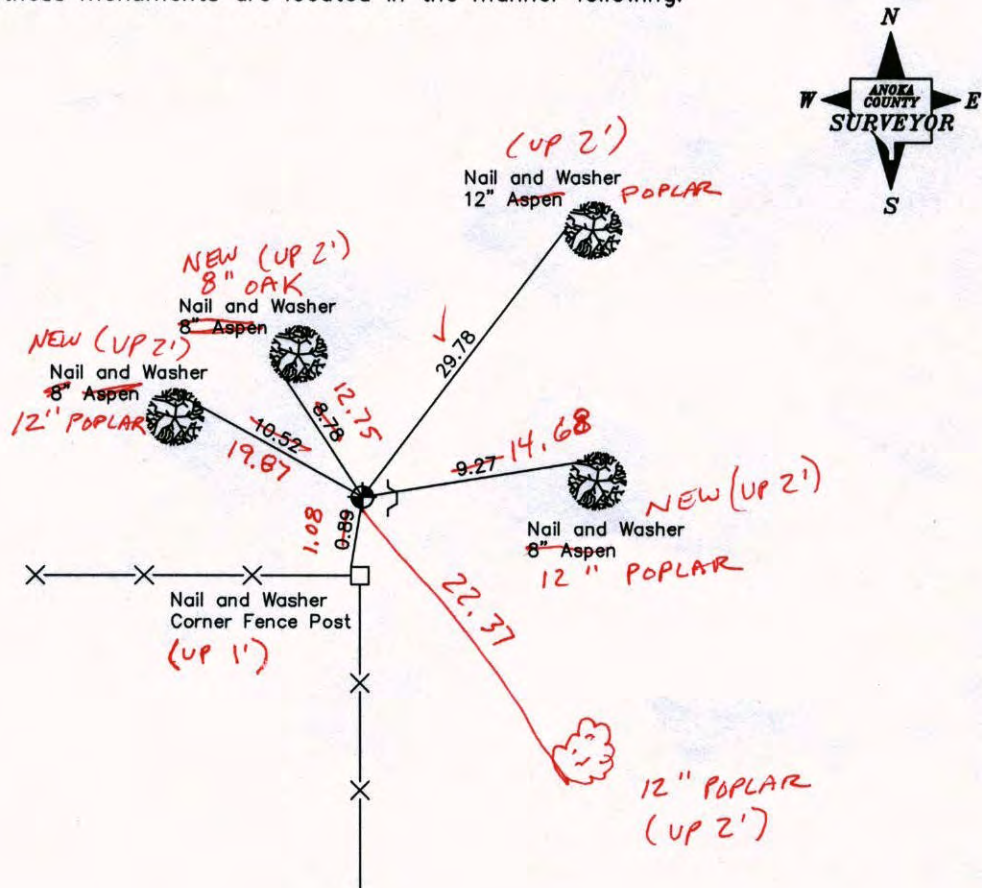 these monuments are located in the manner following:
N
W
ANOKA
COUNTY
SURVEYOR
E
S
(UP 2')
Nail and Washer
12" Aspen POPLAR
29.78
NEW (UP 2')
8" OAK
Nail and Washer
8" Aspen
8.78
12.75
NEW (UP 2')
Nail and Washer
8" Aspen
12" POPLAR
10.52
19.87
9.27 14.68
NEW (UP 2')
Nail and Washer
8" Aspen
12" POPLAR
1.08
0.89
Nail and Washer
Corner Fence Post
(UP 1')
22.37
12" POPLAR
(UP 2')